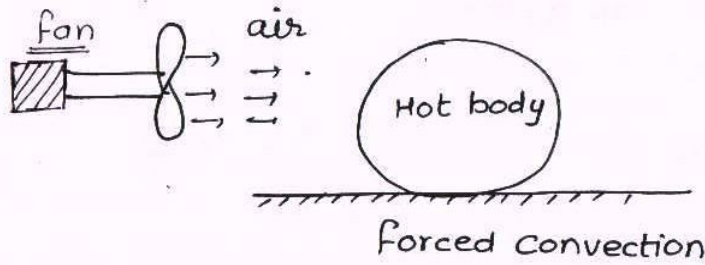 fan
air
Hot body
forced convection